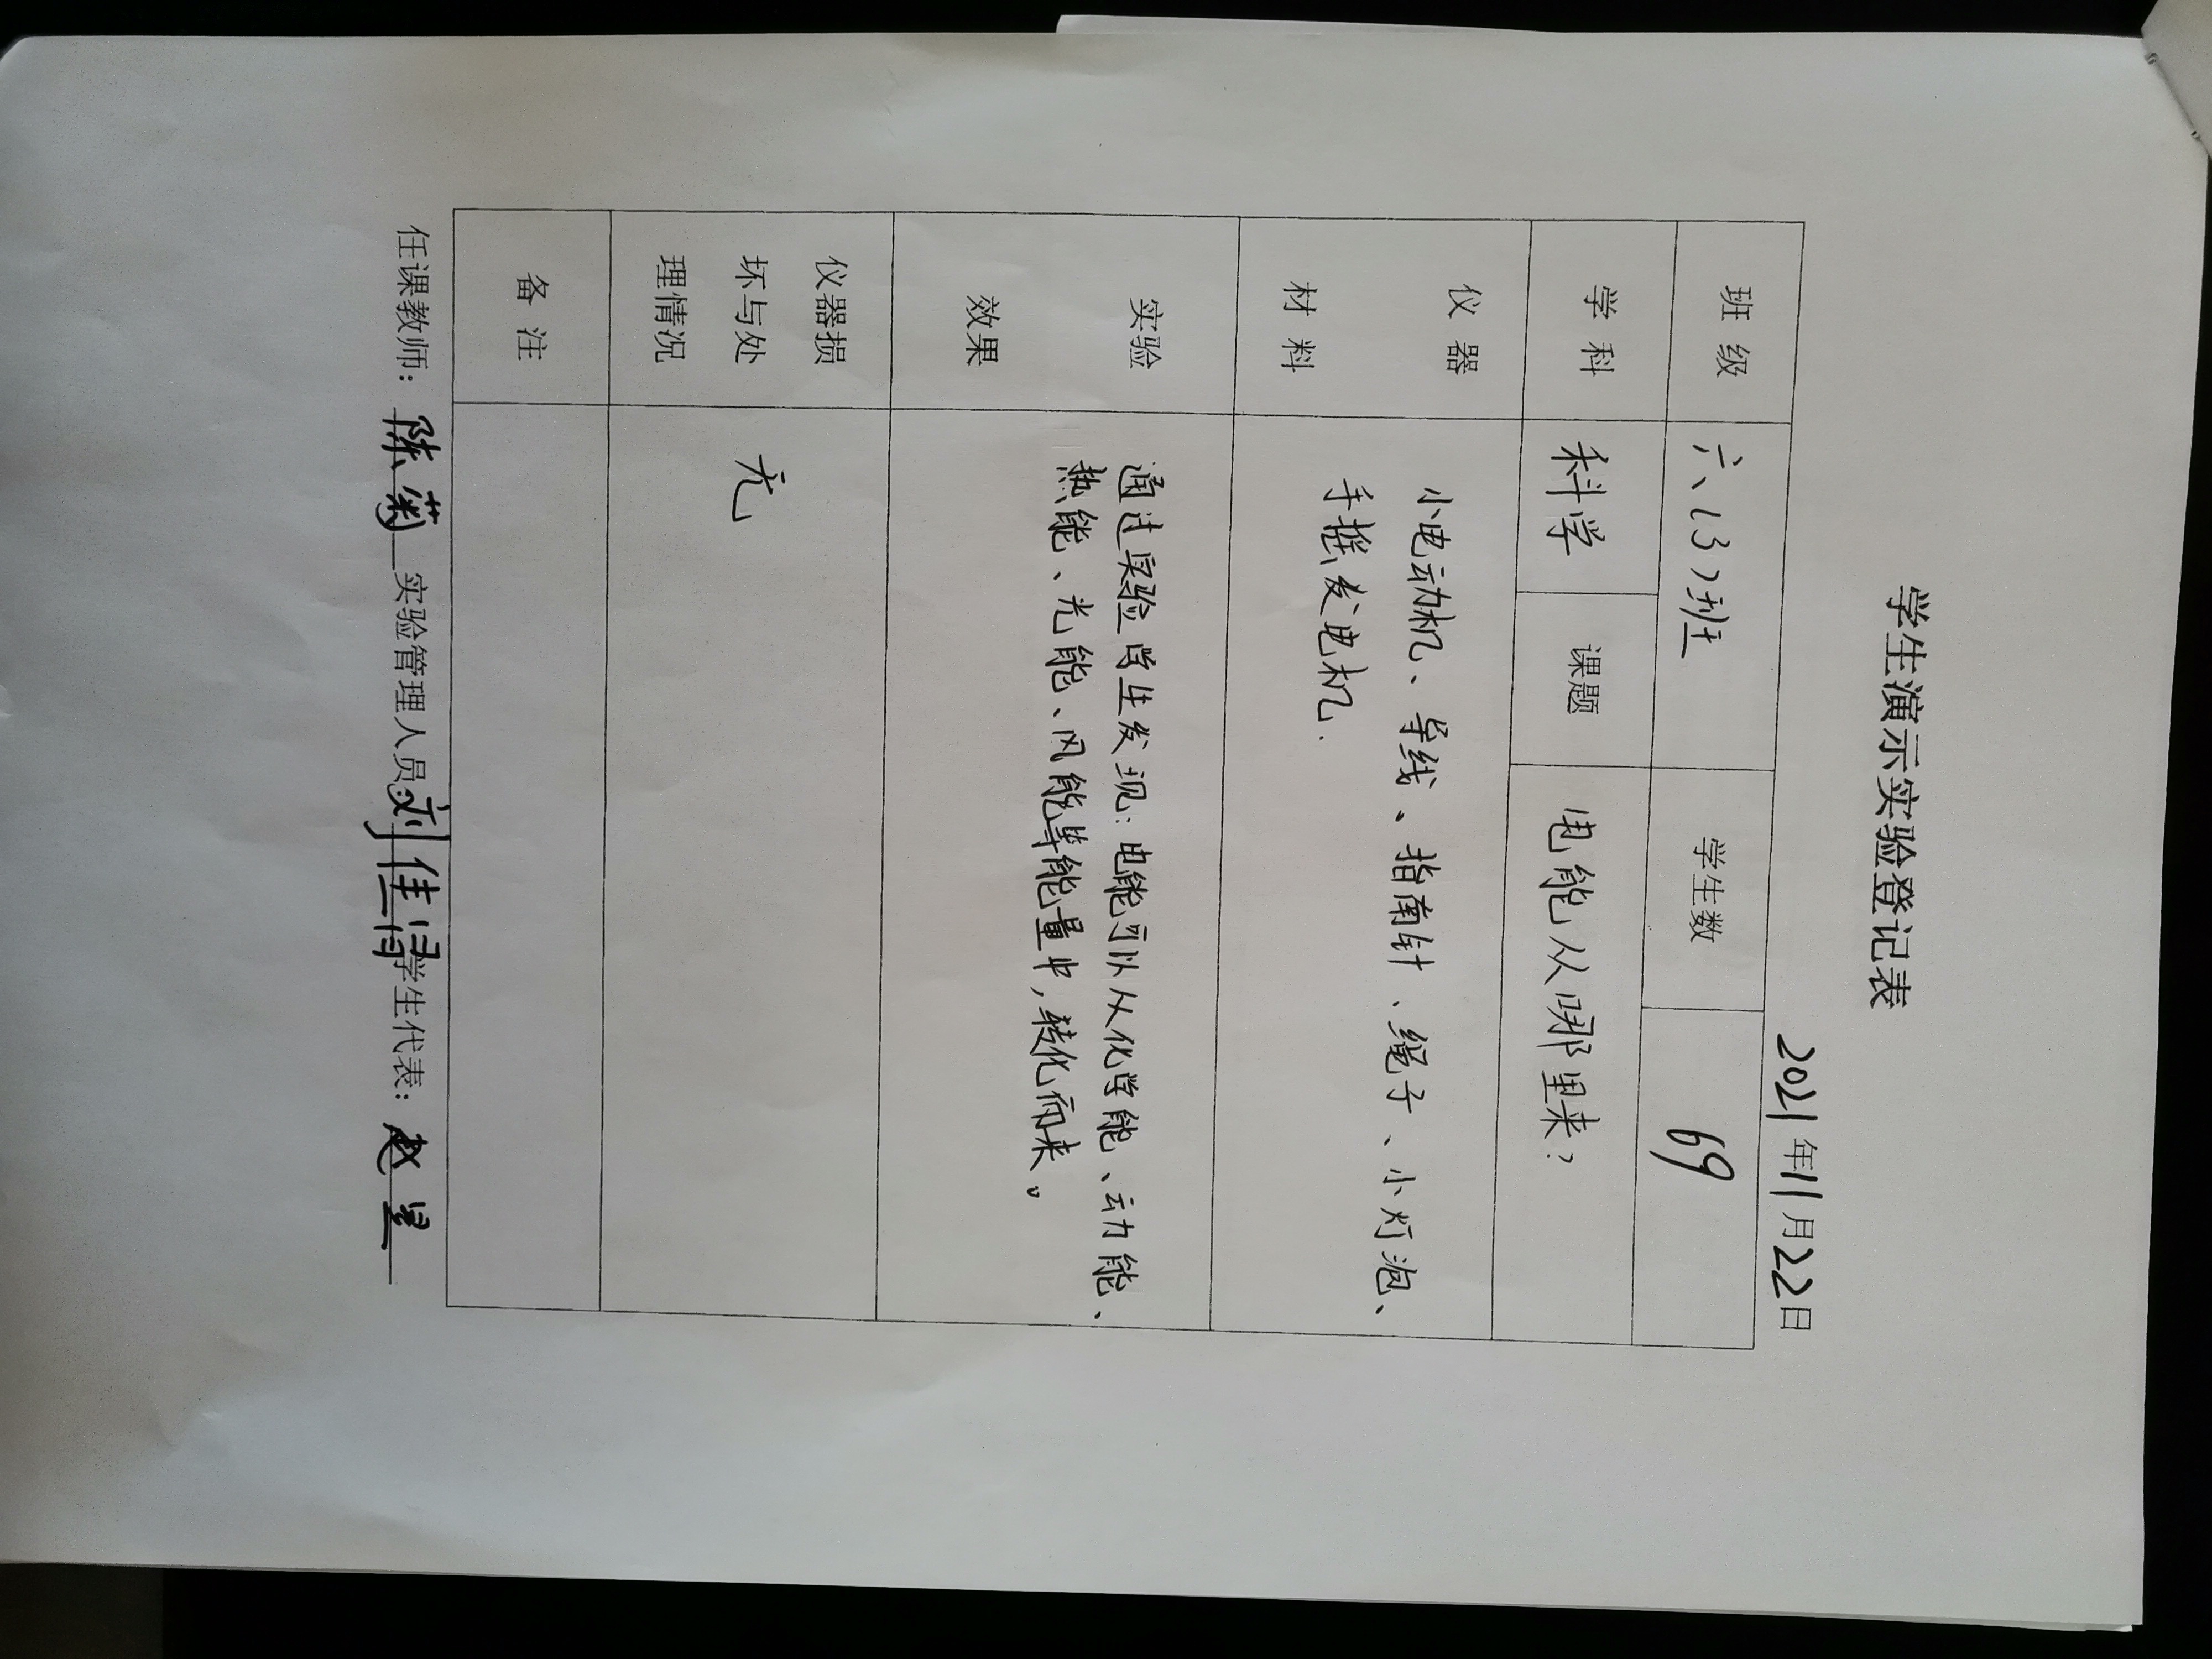 学生演示实验登记表
2021年11月22日
班级 六、(3)班 学生数 69
学科 科学 课题 电能从哪里来?
仪器 小电动机、导线、指南针、绳子、小灯泡、
材料 手摇发电机.
实验 通过实验学生发现:电能可以从化学能、动能、
效果 热能、光能、风能等能量中,转化而来。
仪器损
坏与处 无
理情况
备注
任课教师:陈菊 实验管理人员:刘佳 学生代表:赵